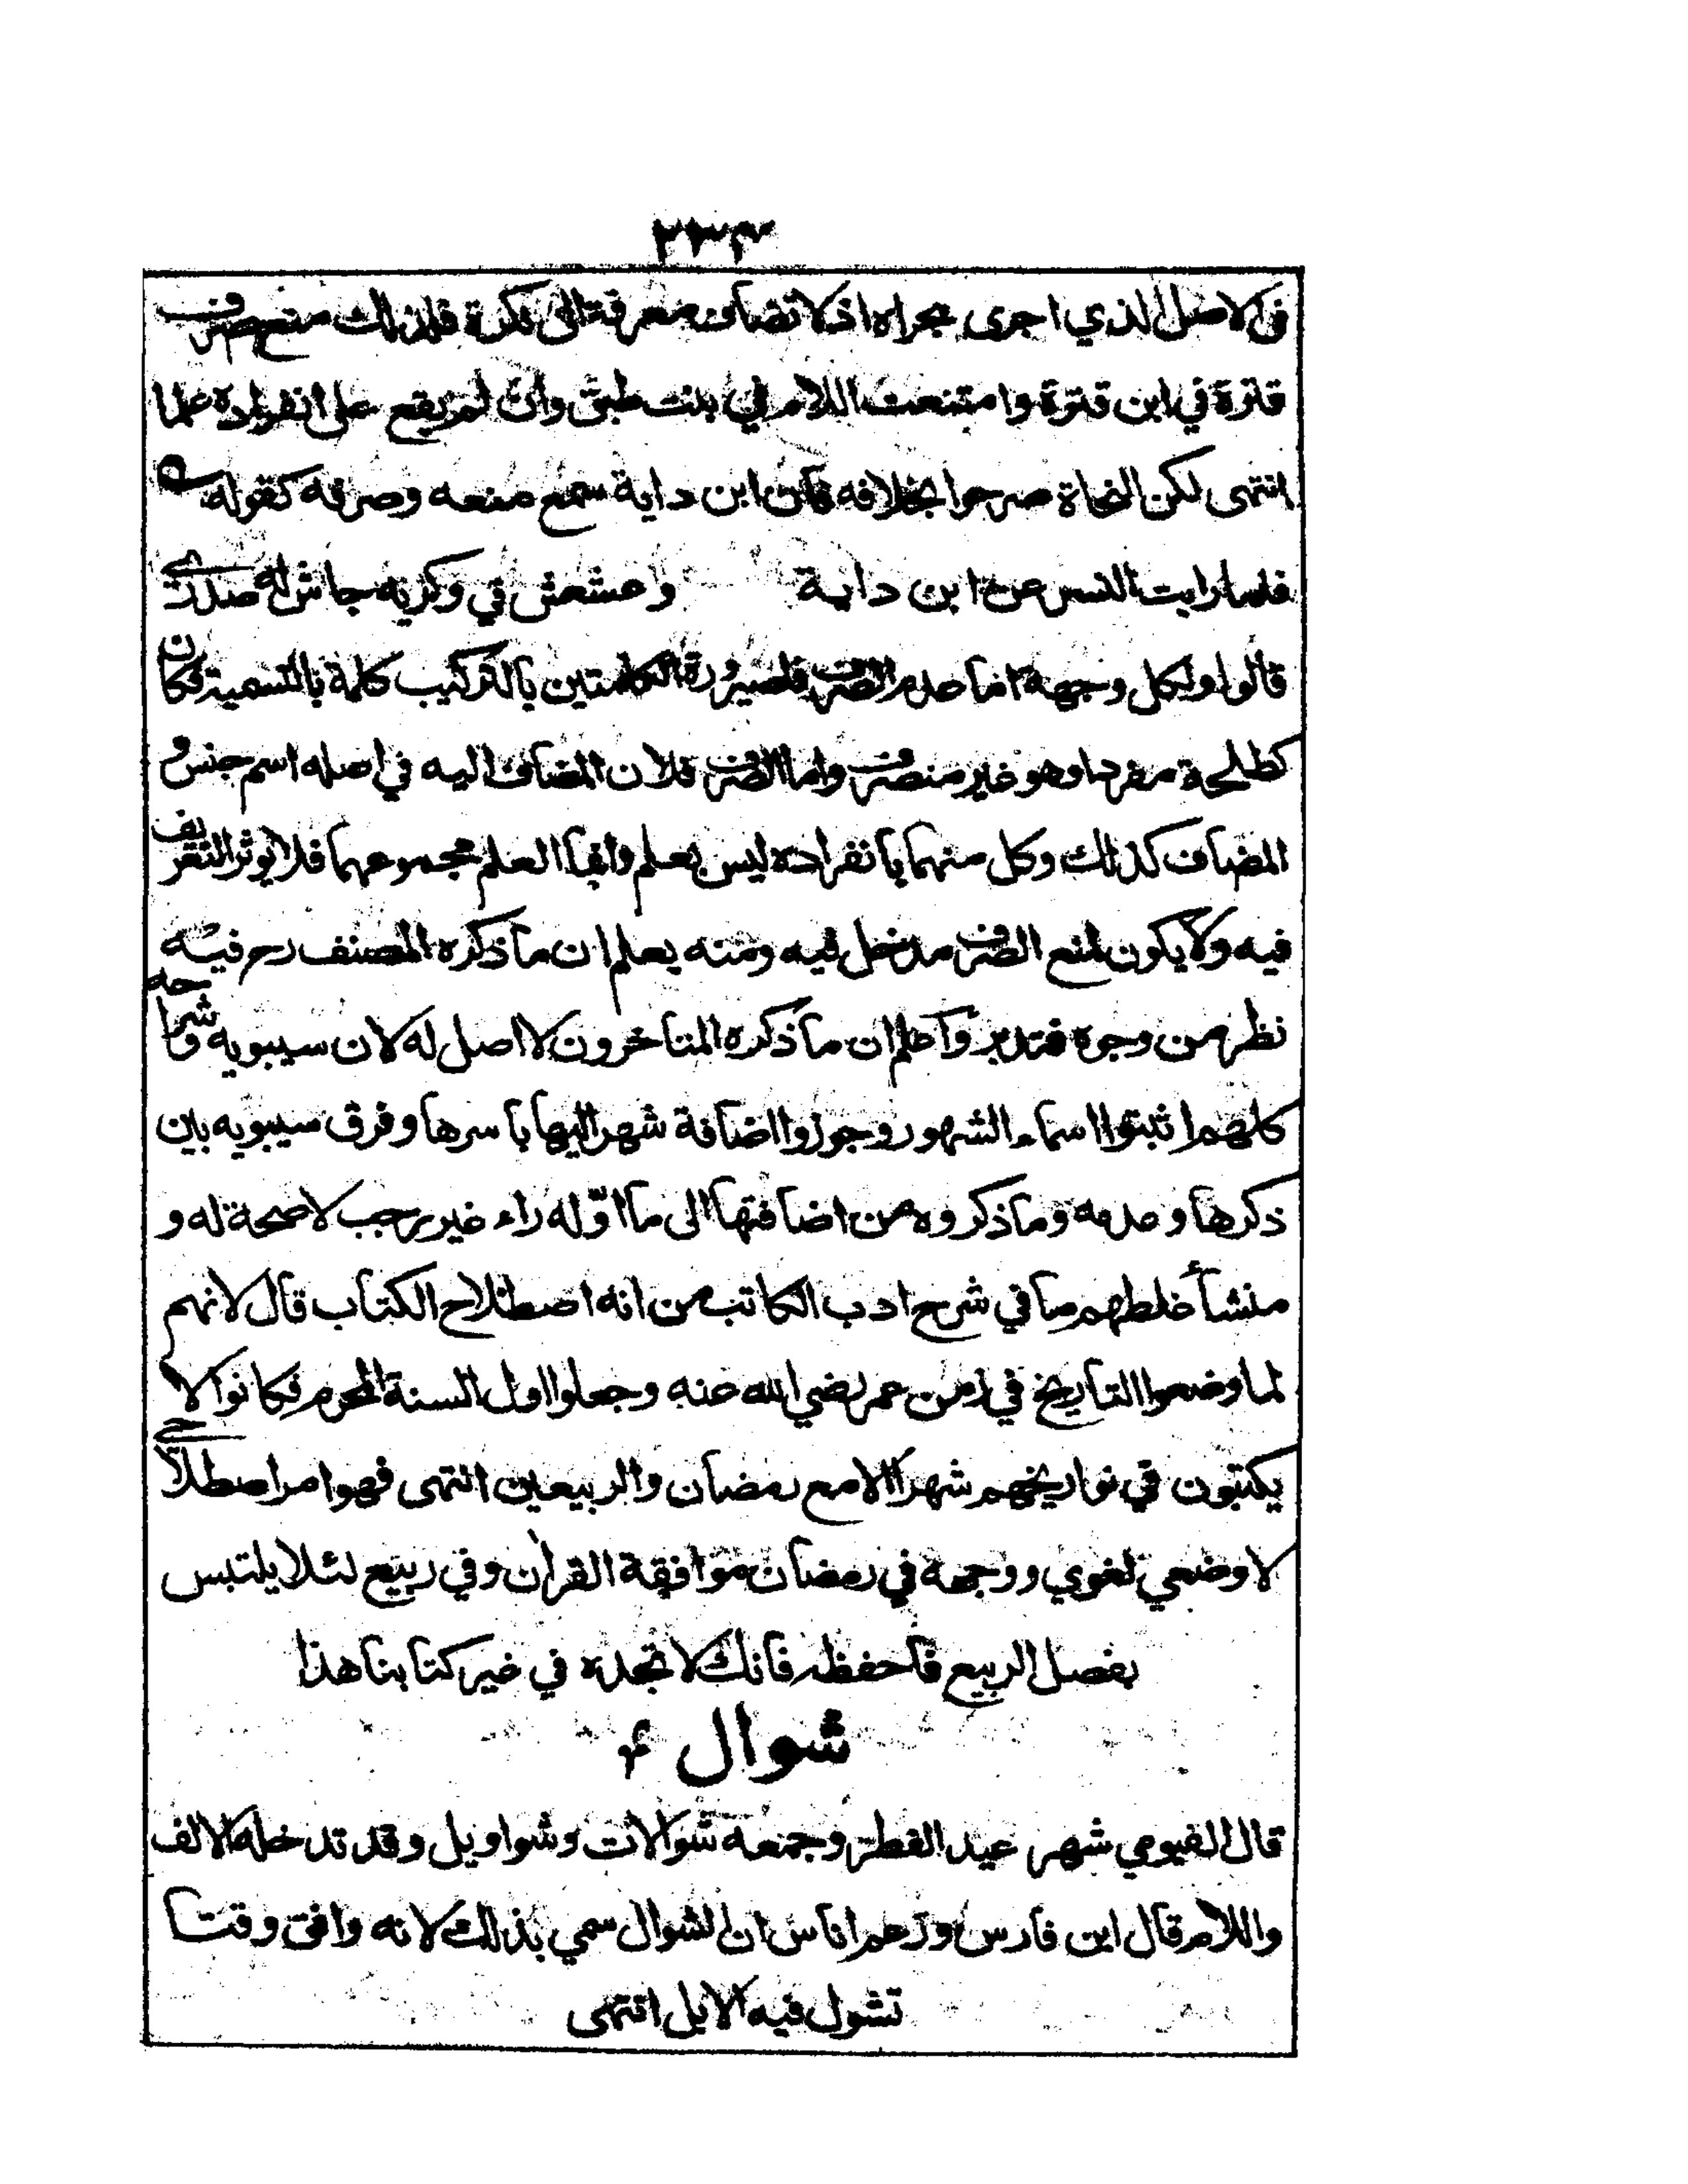 ٣٣٣
في الاصل الذي اجرى مجراه اذ لا تضاف معرفة الى نكرة فلذلك منع صرف
قترة في ابن قترة وامتنعت اللام في بنت طبق وان لم يقع على انفراده علما
انتهى لكن النحاة صرحوا بخلافه فان ابن داية سمع منعه وصرفه كقوله
فلما رايت النسر عن ابن داية وعشعش في وكريه جاش له صدري
قالوا ولكل وجهة اما عدم الصرف فلصيرورة الكلمتين بالتركيب كلمة بالتسمية فكان
كطلحة مفردا وهو غير منصرف واما الصرف فلان المضاف اليه في اصله اسم جنس و
المضاف كذلك وكل منهما بانفراده ليس بعلم وانما العلم مجموعهما فلا يوثر التعريف
فيه ولا يكون لمنع الصرف مدخل فيه ومنه يعلم ان ما ذكره المصنف رح فيه
نظر من وجوه فتدبر واعلم ان ما ذكره المتاخرون لا اصل له لان سيبويه وشراحه
كلهم اثبتوا اسماء الشهور وجوزوا اضافة شهر اليها باسرها وفرق سيبويه بين
ذكرها وعدمه وما ذكروه من اضافتها الى ما اوّله راء غير رجب لا صحة له و
منشأ غلطهم ما في شرح ادب الكاتب من انه اصطلاح الكتاب قال لانهم
لما وضعوا التاريخ في زمن عمر رضي الله عنه وجعلوا اول السنة المحرم فكانوا لا
يكتبون في تواريخهم شهرا الا مع رمضان والربيعين انتهى فهو امر اصطلاحي
لا وضعي لغوي ووجهه في رمضان موافقة القران وفي ربيع لئلا يلتبس
بفصل الربيع فاحفظه فانك لا تجده في غير كتابنا هذا
شوال
قال الفيومي شهر عيد الفطر وجمعه شوالات وشواويل وقد تدخله الالف
واللام قال ابن فارس وزعم اناس ان الشوال سمي بذلك لانه وافق وقتا
تشول فيه الابل انتهى